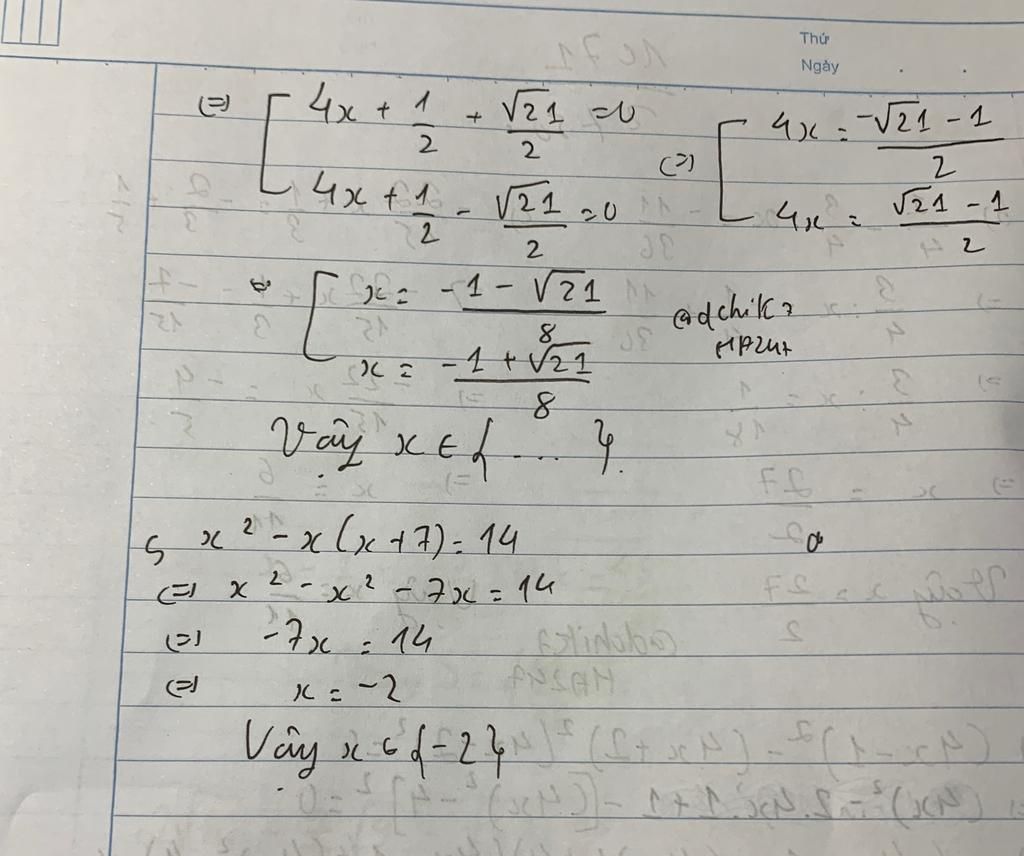 Thứ
Ngày
(=) [ 4x + 1/2 + √21/2 = 0
4x + 1/2 - √21/2 = 0
(=) [ 4x = -√21 - 1 / 2
4x = √21 - 1 / 2
[ x = -1 - √21 / 8
x = -1 + √21 / 8
@dchik7
HA247
Vây x ∈ { ... }.
x² - x(x+7) = 14
(=) x² - x² - 7x = 14
(=) -7x = 14
(=) x = -2
Vây x ∈ {-2}